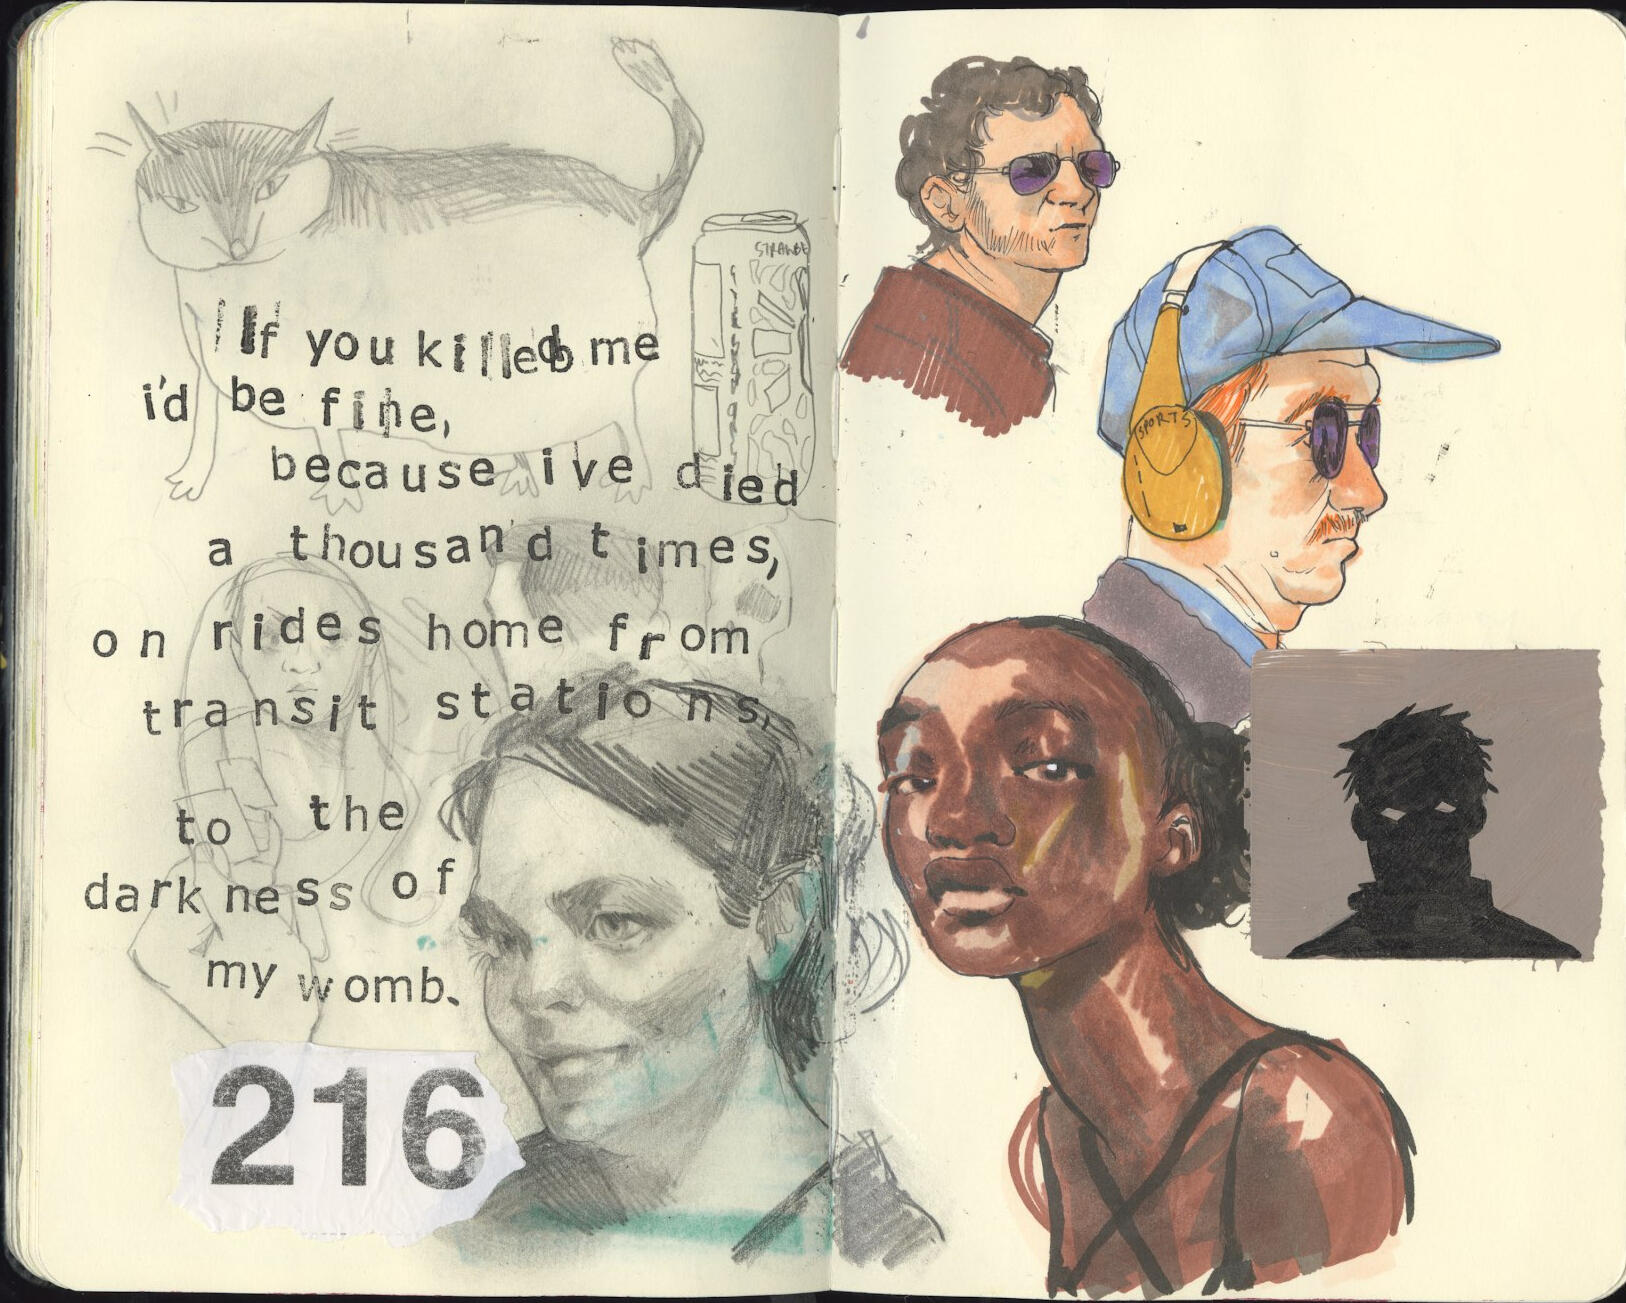 If you killed me
i'd be fine,
because ive died
a thousand times,
on rides home from
transit stations,
to the
darkness of
my womb.
216
STRAWBE
SPORTS